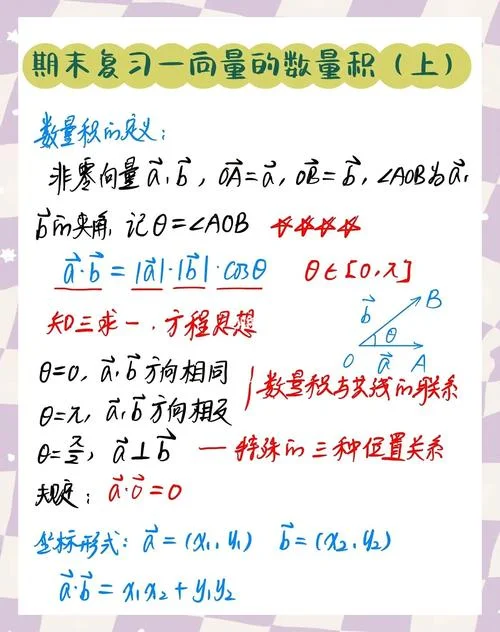 期末复习一向量的数量积（上）
数量积的定义：
非零向量 a⃗, b⃗, OA⃗=a⃗, OB⃗=b⃗, ∠AOB为a⃗,
b⃗的夹角, 记θ=∠AOB ☆☆☆☆
a⃗·b⃗=|a⃗|·|b⃗|·cosθ θ∈[0,π]
知三求一, 方程思想
B
b⃗
θ
O a⃗ A
θ=0, a⃗, b⃗ 方向相同
θ=π, a⃗, b⃗ 方向相反
数量积与共线的联系
θ=π/2, a⃗⊥b⃗ — 特殊的三种位置关系
规定：a⃗·0⃗=0
坐标形式：a⃗=(x₁, y₁) b⃗=(x₂, y₂)
a⃗·b⃗=x₁x₂+y₁y₂